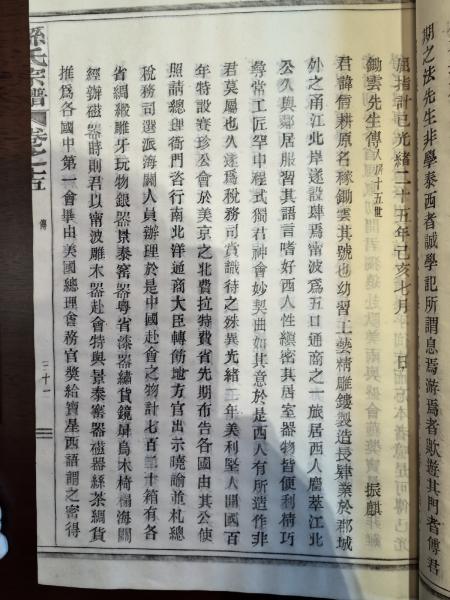 期之法先生非學泰西者誠學記所謂息焉游焉者歟遊其門者傅君
屈指計已光緒二十五年己亥七月 日 振麒
鋤雲先生傳 八房十五世
君諱脩耕原名稼鋤雲其號也幼習工藝精雕鏤製造長肄業於郡城
外之甬江北岸遂設肆焉甯波為五口通商之一大旅居西人麕萃江北
公久與鄰居服習其語言嗜好西人性縝密其居室器物皆便利精巧
尋常工匠罕中程式獨君神會妙契曲如其意於是西人有所造作非
君莫屬也久遂為稅務司賞識待之殊異光緒 年美利堅人開國百
年特設賽珍公會於美京之北費拉特費省先期布告各國由其公使
照請總理衙門咨行南北洋通商大臣轉飭地方官出示曉諭並札總
稅務司選派海關人員辦理於是中國赴會之物計七百二十箱有各
省綢緞雕牙玩物銀器景泰窑器粤省漆器繡貨鏡屏烏木椅榻海關
經辦磁器時則君以甯波雕木器赴會特與景泰窑器磁器絲茶綢貨
推爲各國中第一會畢由美國總理會務官獎給寶星西語謂之密得
孫氏宗譜 卷之五 傳 三十一